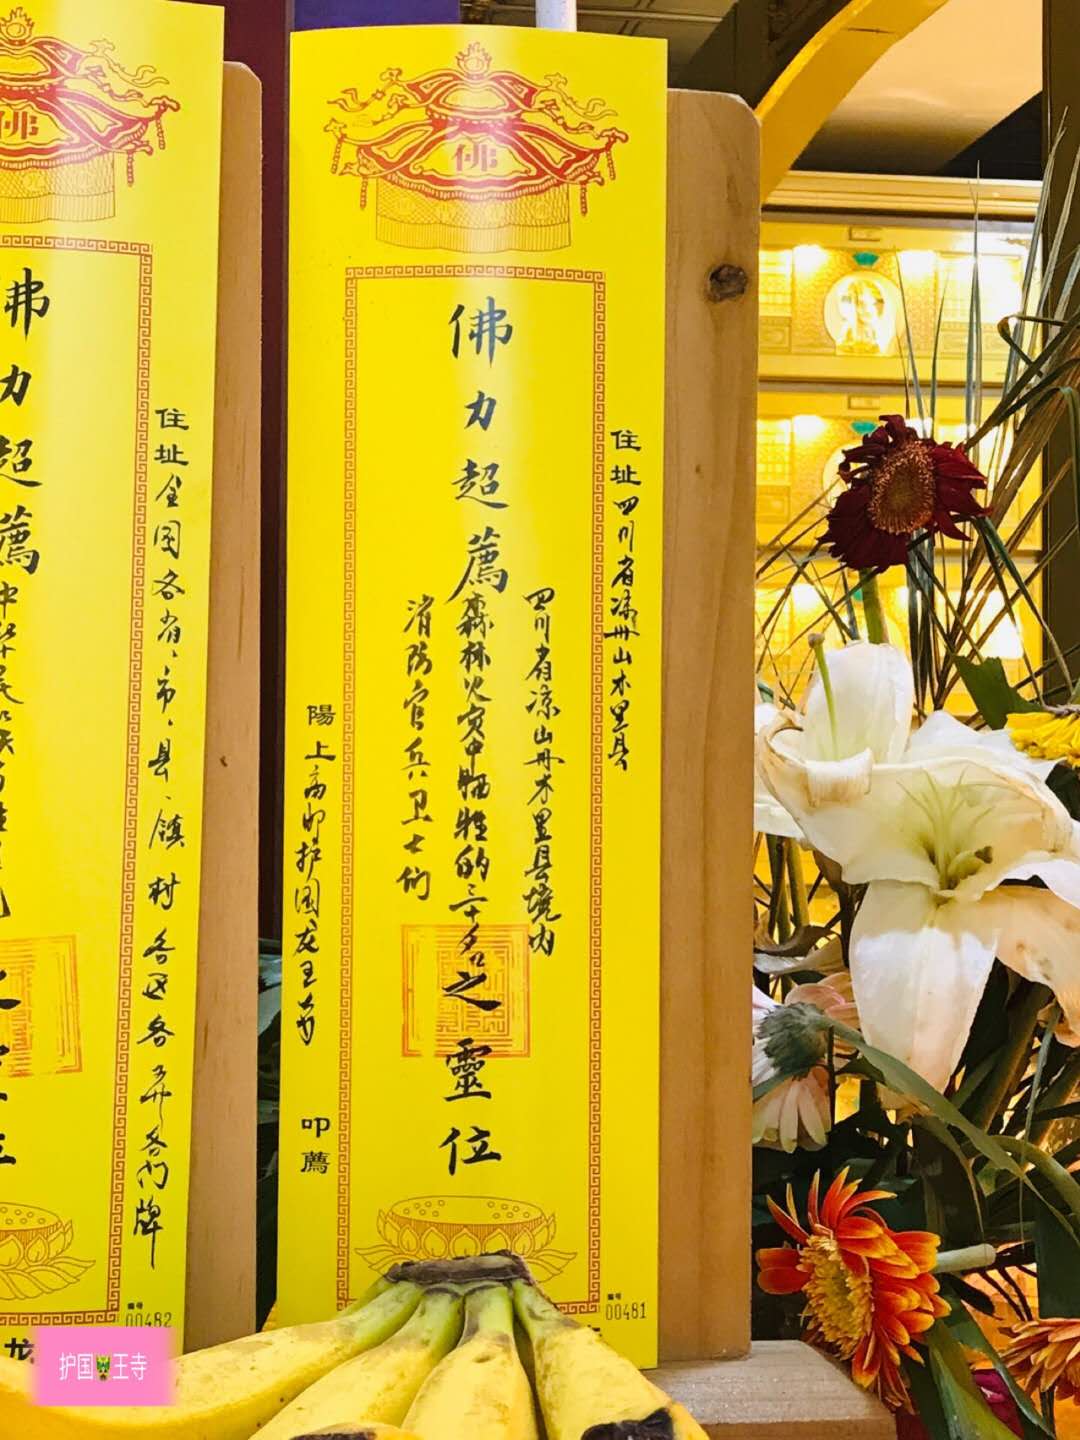 佛
佛力超薦
住址四川省凉州山木里县
四川省凉山州木里县境内
森林火灾中牺牲的三十名
消防官兵卫士们
之靈位
陽上高邮护国龙王寺 叩薦
编号
00481
佛
佛力超薦
住址全国各省、市、县、镇村各区各 各门牌
之
编号
00482
龙
护国王寺